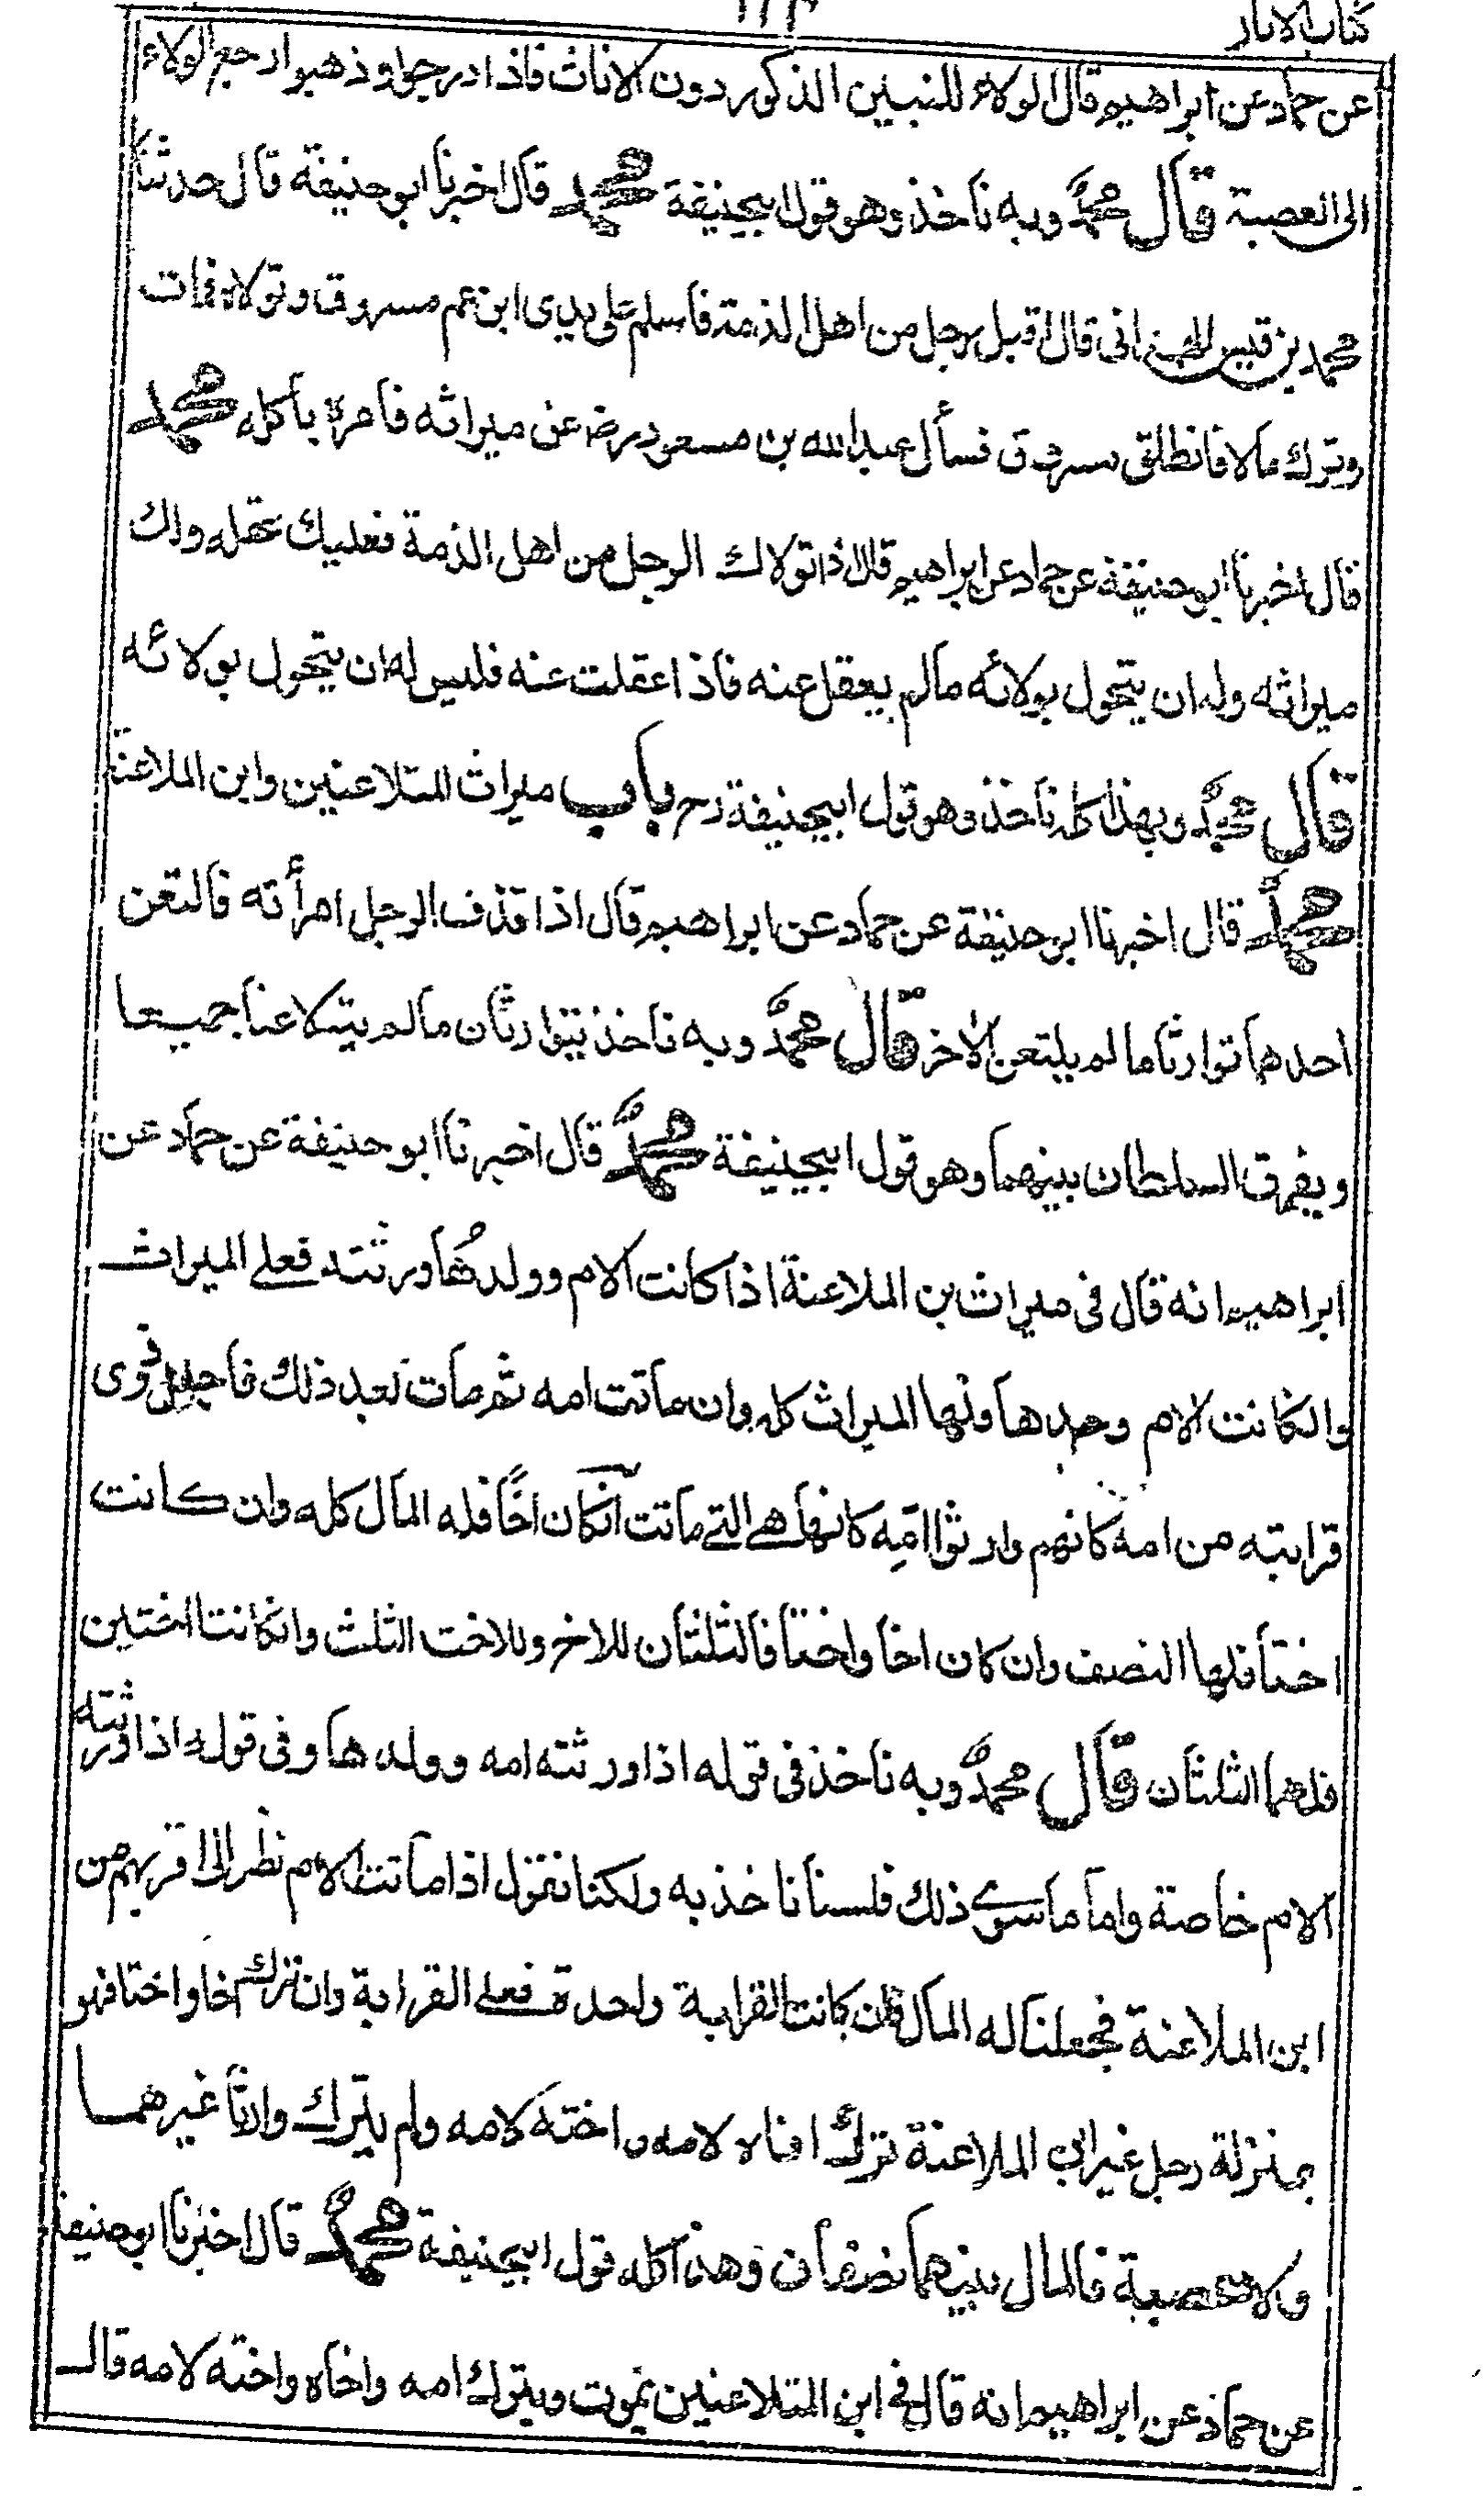 كتاب الآثار
عن حماد عن ابراهيم قال الولاء للنبيين الذكور دون الاناث فاذا درجوا وذهبوا رجع الولاء
الى العصبة قال محمد وبه ناخذ وهو قول ابيحنيفة محمد قال اخبرنا ابو حنيفة قال حدثنا
محمد بن قيس الهمدانى قال اقبل رجل من اهل الذمة فاسلم على يدى ابن عم مسروق وتولاه فمات
وترك مالا فانطلق مسروق فسأل عبدالله بن مسعود رض عن ميراثه فامره باكله محمد
قال اخبرنا ابو حنيفة عن حماد عن ابراهيم قال اذا تولاك الرجل من اهل الذمة فعليك عقله ولك
ميراثه وله ان يتحول بولائه مالم يعقل عنه فاذا عقلت عنه فليس له ان يتحول بولائه
قال محمد وبهذا كله ناخذ وهو قول ابيحنيفة رح باب ميراث المتلاعنين وابن الملاعنة
محمد قال اخبرنا ابو حنيفة عن حماد عن ابراهيم قال اذا قذف الرجل امرأته فالتعن
احدهما توارثا مالم يلتعن الاخر قال محمد وبه ناخذ يتوارثان مالم يتلاعنا جميعا
ويفرق السلطان بينهما وهو قول ابيحنيفة محمد قال اخبرنا ابو حنيفة عن حماد عن
ابراهيم انه قال فى ميراث بن الملاعنة اذا كانت الام وولدها ورثته فعلى الميراث
وانكانت الام وحدها ولها الميراث كله وان ماتت امه ثم مات بعد ذلك فاجعل ذوى
قرابته من امه كانهم وارثوا امه كانها هى التى ماتت انكان اخا فله المال كله وان كانت
اختا فلها النصف وان كان اخا واختا فالثلثان للاخ وللاخت الثلث وانكانتا اختين
فلهما الثلثان قال محمد وبه ناخذ فى قوله اذا ورثته امه وولدها وفى قوله اذا ورثته
الام خاصة واما ما سوى ذلك فلسنا ناخذ به ولكنا نقول اذا ماتت الام نظر الى اقربهم من
ابن الملاعنة فجعلنا له المال فان كانت القرابة واحدة فعلى القرابة وان ترك اخا واختا فهو
بمنزلة رجل غير ابن الملاعنة ترك اخاه لامه واخته لامه ولم يترك وارثا غيرهما
ولا عصبة فالمال بينهما نصفان وهذا كله قول ابيحنيفة محمد قال اخبرنا ابو حنيفة
عن حماد عن ابراهيم انه قال فى ابن المتلاعنين يموت ويترك امه واخاه واخته لامه قال